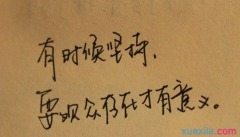 有时候坚持,
要观众存在才有意义。
xuexila.com